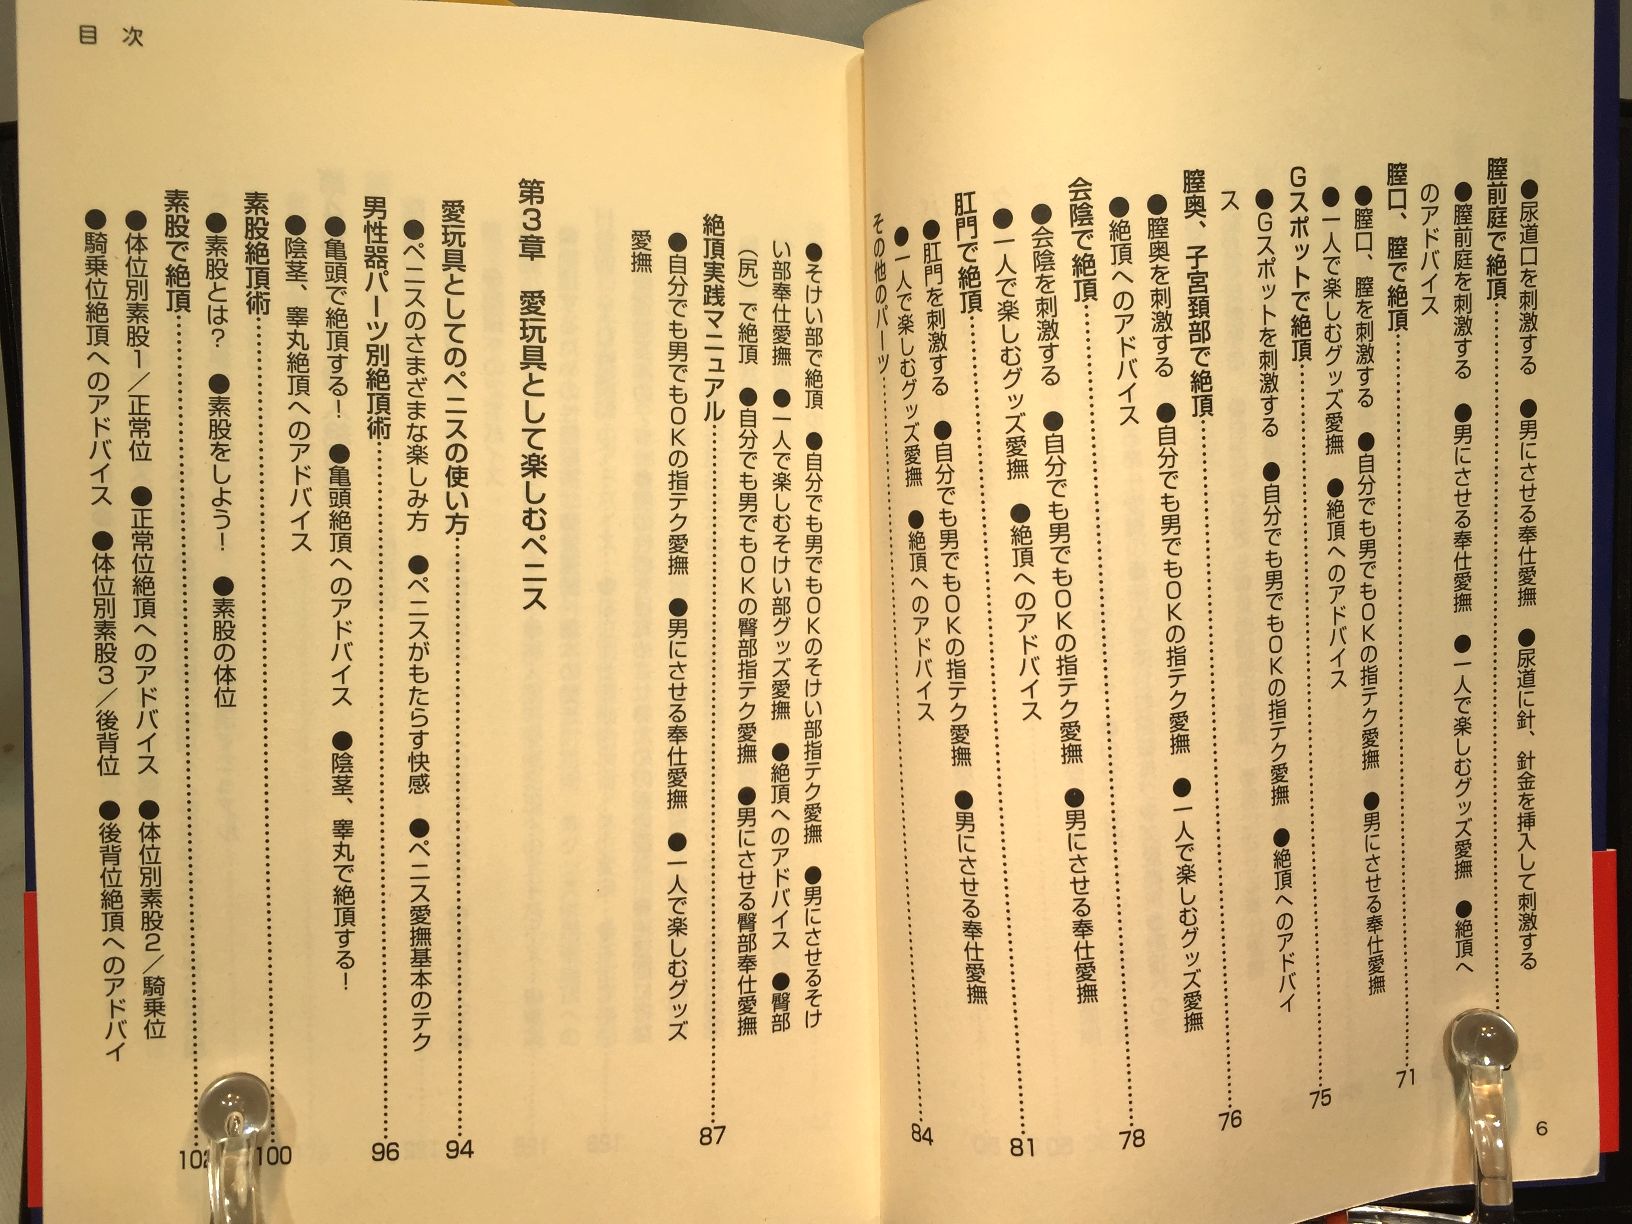 6
●尿道口を刺激する ●男にさせる奉仕愛撫 ●尿道に針、針金を挿入して刺激する
膣前庭で絶頂
●膣前庭を刺激する ●男にさせる奉仕愛撫 ●一人で楽しむグッズ愛撫 ●絶頂へ
のアドバイス
膣口、膣で絶頂 71
●膣口、膣を刺激する ●自分でも男でもOKの指テク愛撫 ●男にさせる奉仕愛撫
●一人で楽しむグッズ愛撫 ●絶頂へのアドバイス
Gスポットで絶頂 75
●Gスポットを刺激する ●自分でも男でもOKの指テク愛撫 ●絶頂へのアドバイ
ス
膣奥、子宮頚部で絶頂 76
●膣奥を刺激する ●自分でも男でもOKの指テク愛撫 ●一人で楽しむグッズ愛撫
●絶頂へのアドバイス
会陰で絶頂 78
●会陰を刺激する ●自分でも男でもOKの指テク愛撫 ●男にさせる奉仕愛撫
●一人で楽しむグッズ愛撫 ●絶頂へのアドバイス
肛門で絶頂 81
●肛門を刺激する ●自分でも男でもOKの指テク愛撫 ●男にさせる奉仕愛撫
●一人で楽しむグッズ愛撫 ●絶頂へのアドバイス
その他のパーツ 84
目次
●そけい部で絶頂 ●自分でも男でもOKのそけい部指テク愛撫 ●男にさせるそけ
い部奉仕愛撫 ●一人で楽しむそけい部グッズ愛撫 ●絶頂へのアドバイス ●臀部
(尻)で絶頂 ●自分でも男でもOKの臀部指テク愛撫 ●男にさせる臀部奉仕愛撫
絶頂実践マニュアル 87
●自分でも男でもOKの指テク愛撫 ●男にさせる奉仕愛撫 ●一人で楽しむグッズ
愛撫
第3章 愛玩具として楽しむペニス
愛玩具としてのペニスの使い方 94
●ペニスのさまざまな楽しみ方 ●ペニスがもたらす快感 ●ペニス愛撫基本のテク
男性器パーツ別絶頂術 96
●亀頭で絶頂する! ●亀頭絶頂へのアドバイス ●陰茎、睾丸で絶頂する!
●陰茎、睾丸絶頂へのアドバイス
素股絶頂術 100
●素股とは? ●素股をしよう! ●素股の体位
素股で絶頂 102
●体位別素股1/正常位 ●正常位絶頂へのアドバイス ●体位別素股2/騎乗位
●騎乗位絶頂へのアドバイス ●体位別素股3/後背位 ●後背位絶頂へのアドバイ